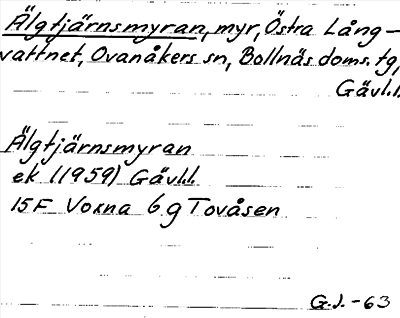 Älgtjärnsmyran, myr, Östra Lång-
vattnet, Ovanåkers sn, Bollnäs doms. tg,
Gävl.l.
Älgtjärnsmyran
ek (1959) Gävl.l.
15F Voxna 6 g Tovåsen
G.J.-63